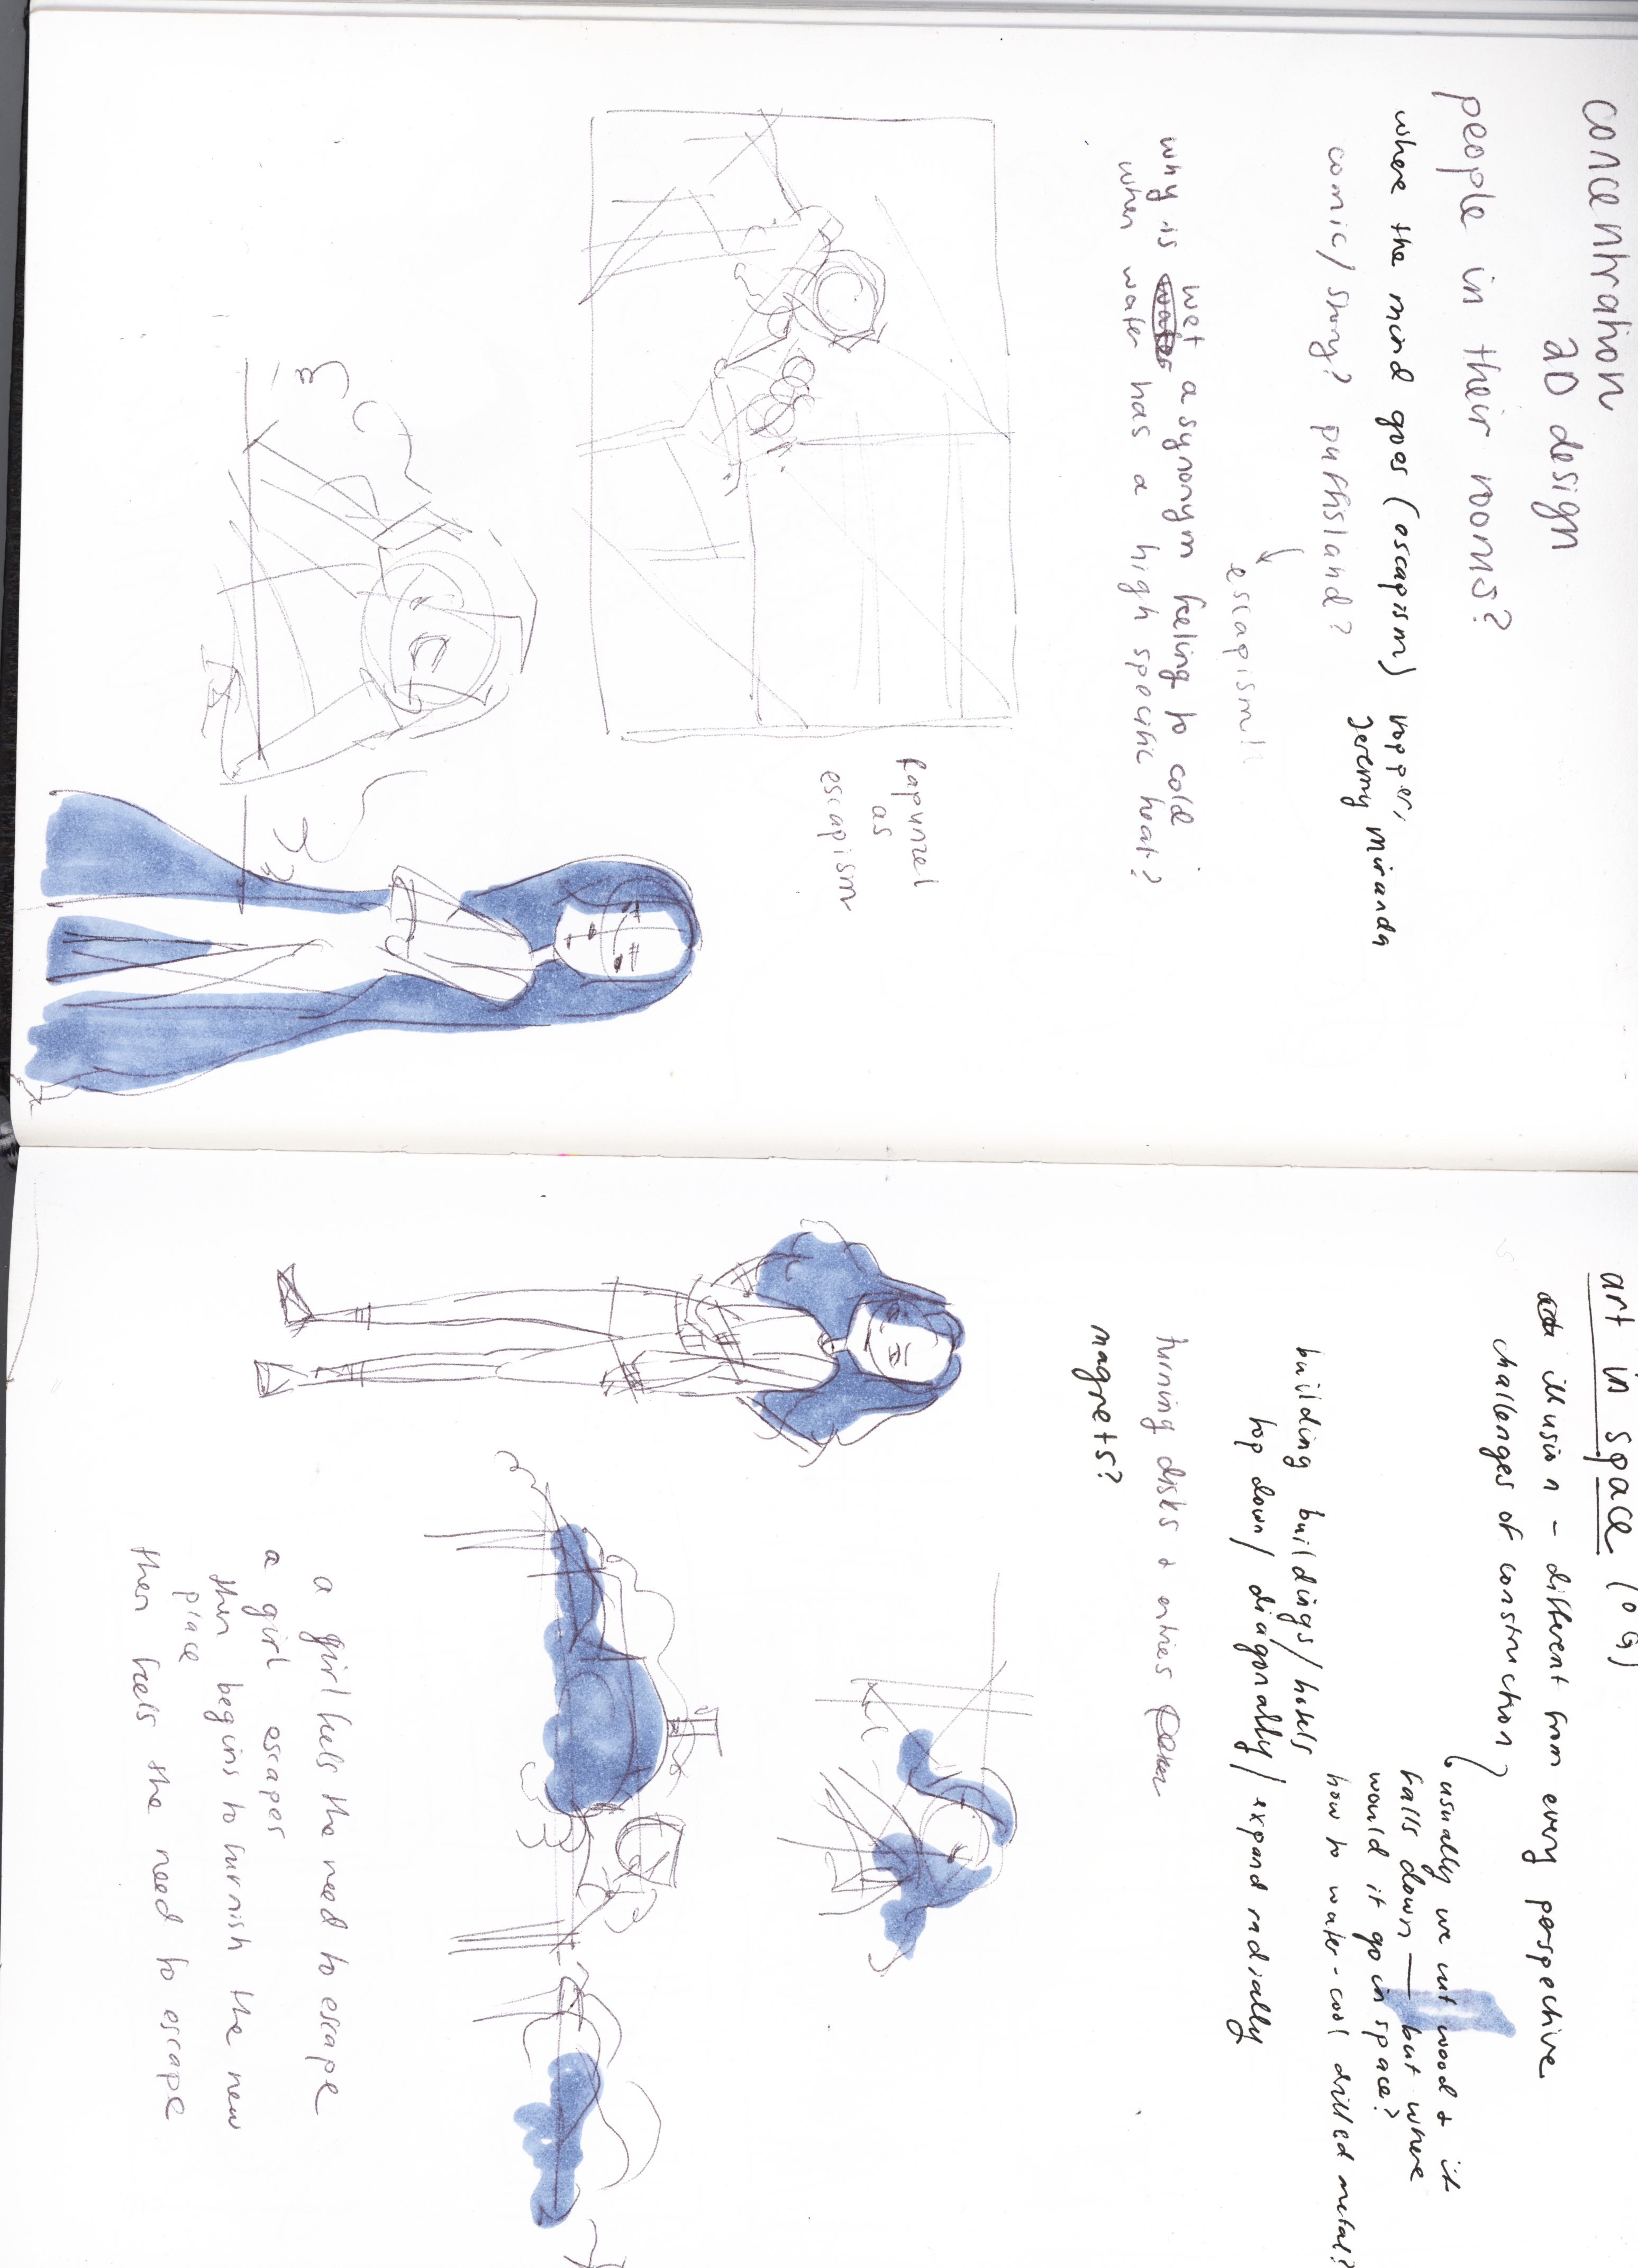 concentration
2D design
people in their rooms?
where the mind goes (escapism) hopper,
jeremy miranda
comic/story? puffisland?
escapism!
why is wet a synonym feeling to cold
when water has a high specific heat?
Rapunzel
as
escapism
art in space (0G)
illusion - different from every perspective
challenges of construction
usually we cut wood + it
falls down — but where
would it go in space?
how to water-cool drilled metal?
building buildings/hotels
top down/ diagonally/ expand radially
turning disks +
magnets?
a girl feels the need to escape
a girl escapes
then begins to furnish the new
place
then feels the need to escape